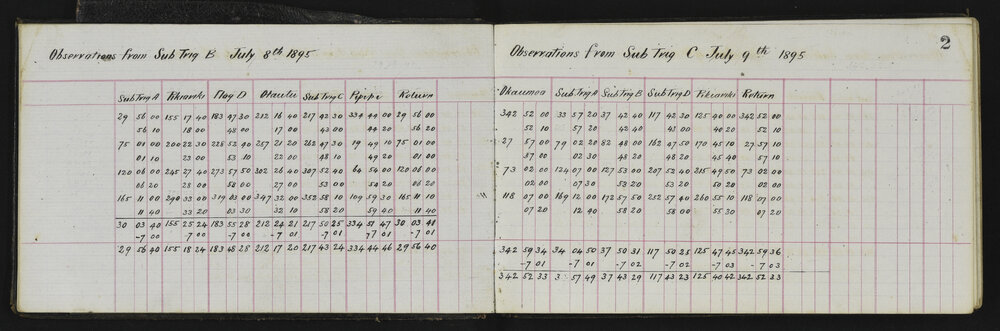 Observations from Sub Trig B July 8th 1895
Sub Trig A Flag D Sub Trig C Pipipi Return
29 56 00 155 17 40 183 47 30 212 16 40 217 42 30 334 44 00 29 56 00
56 10 18 00 48 00 17 00 43 00 44 20 56 20
75 01 00 200 22 30 228 52 40 257 21 20 262 47 30 19 49 10 75 01 00
01 10 23 00 53 10 22 00 48 10 49 20 01 00
120 06 00 245 27 40 273 57 50 302 26 40 307 52 40 64 54 00 120 06 00
06 20 28 00 58 00 27 00 53 00 54 20 06 20
165 11 00 290 33 00 319 03 00 347 32 00 352 58 10 109 59 30 165 11 10
11 40 33 20 03 30 32 10 58 20 59 40 11 40
30 03 40 155 25 24 183 55 28 212 24 21 217 50 25 334 51 47 30 03 41
-7 00 -7 00 -7 00 -7 01 -7 01 7 01 -7 01
29 56 40 155 18 24 183 48 28 212 17 20 217 43 24 334 44 46 29 56 40
2
Observations from Sub Trig C July 9th 1895
Sub Trig A Sub Trig B Sub Trig D Return
342 52 00 33 57 20 37 42 40 117 42 30 125 40 00 342 52 00
52 10 57 20 42 40 43 00 40 20 52 10
27 57 00 79 02 20 82 48 00 162 47 50 170 45 10 27 57 10
57 00 02 30 48 20 48 20 45 40 57 10
73 02 00 124 07 00 127 53 00 207 52 40 215 49 50 73 02 00
02 00 07 30 53 20 53 20 50 20 02 00
118 07 00 169 12 00 172 57 50 252 57 40 260 55 10 118 07 00
07 20 12 40 58 20 58 00 55 30 07 20
342 59 34 34 04 50 37 50 31 117 50 25 125 47 45 342 59 36
-7 01 -7 01 -7 02 -7 02 -7 03 -7 03
342 52 33 3 57 49 37 43 29 117 43 23 125 40 42 342 52 33